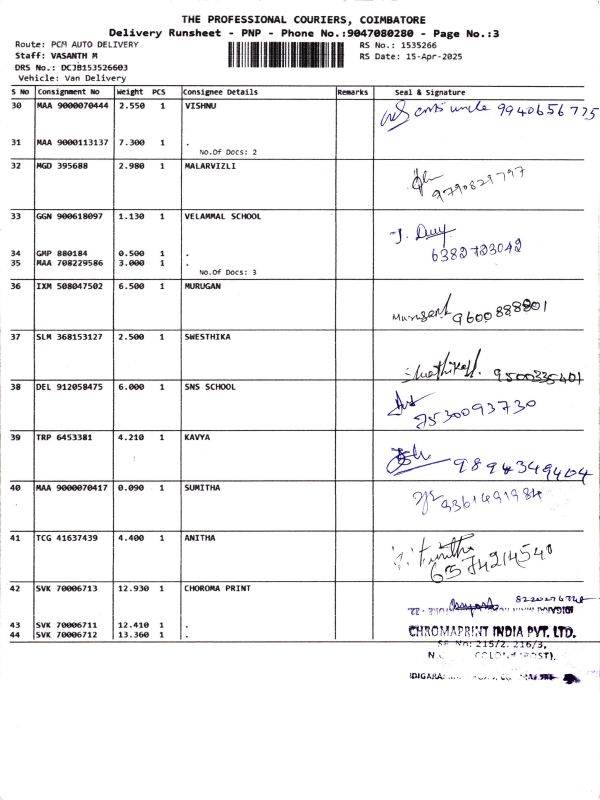 THE PROFESSIONAL COURIERS, COIMBATORE
Delivery Runsheet - PNP - Phone No.:9047080280 - Page No.:3
Route: PCM AUTO DELIVERY RS No.: 1535266
Staff: VASANTH M RS Date: 15-Apr-2025
DRS No.: DCJB153526603
Vehicle: Van Delivery
S No Consignment No Weight PCS Consignee Details Remarks Seal & Signature
30 MAA 9000070444 2.550 1 VISHNU uncle 9940656775
31 MAA 9000113137 7.300 1 .
No.Of Docs: 2
32 MGD 395688 2.980 1 MALARVIZLI 9790829797
33 GGN 900618097 1.130 1 VELAMMAL SCHOOL
6382723042
34 GMP 880184 0.500 1 .
35 MAA 708229586 3.000 1 .
No.Of Docs: 3
36 IXM 508047502 6.500 1 MURUGAN 9600888801
37 SLM 368153127 2.500 1 SWESTHIKA 9500335401
38 DEL 912058475 6.000 1 SNS SCHOOL 7530093730
39 TRP 6453381 4.210 1 KAVYA 9894349404
40 MAA 9000070417 0.090 1 SUMITHA 9361491984
41 TCG 41637439 4.400 1 ANITHA 6374214540
42 SVK 70006713 12.930 1 CHOROMA PRINT
43 SVK 70006711 12.410 1 .
44 SVK 70006712 13.360 1 .
CHROMAPRINT INDIA PVT. LTD.
SF No: 215/2, 216/3,